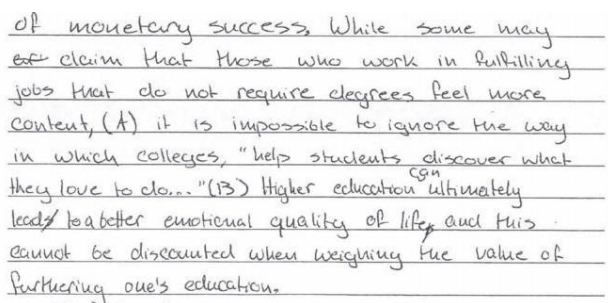 of monetary success. While some may
claim that those who work in fulfilling
jobs that do not require degrees feel more
content, (A) it is impossible to ignore the way
in which colleges, "help students discover what
they love to do..." (B) Higher education can ultimately
lead to a better emotional quality of life, and this
cannot be discounted when weighing the value of
furthering one's education.